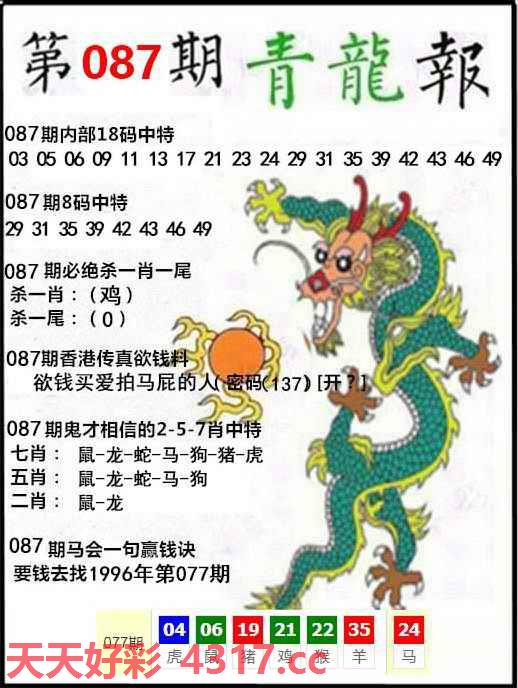 第087期青龍報
087期内部18码中特
03 05 06 09 11 13 17 21 23 24 29 31 35 39 42 43 46 49
087期8码中特
29 31 35 39 42 43 46 49
087期必绝杀一肖一尾
杀一肖：（鸡）
杀一尾：（0）
087期香港传真欲钱料
欲钱买爱拍马屁的人(密码(137)[开？]
087期鬼才相信的2-5-7肖中特
七肖：鼠-龙-蛇-马-狗-猪-虎
五肖：鼠-龙-蛇-马-狗
二肖：鼠-龙
087期马会一句赢钱诀
要钱去找1996年第077期
077期 04 06 19 21 22 35 24
虎 鼠 猪 鸡 猴 羊 马
天天好彩 4317.cc